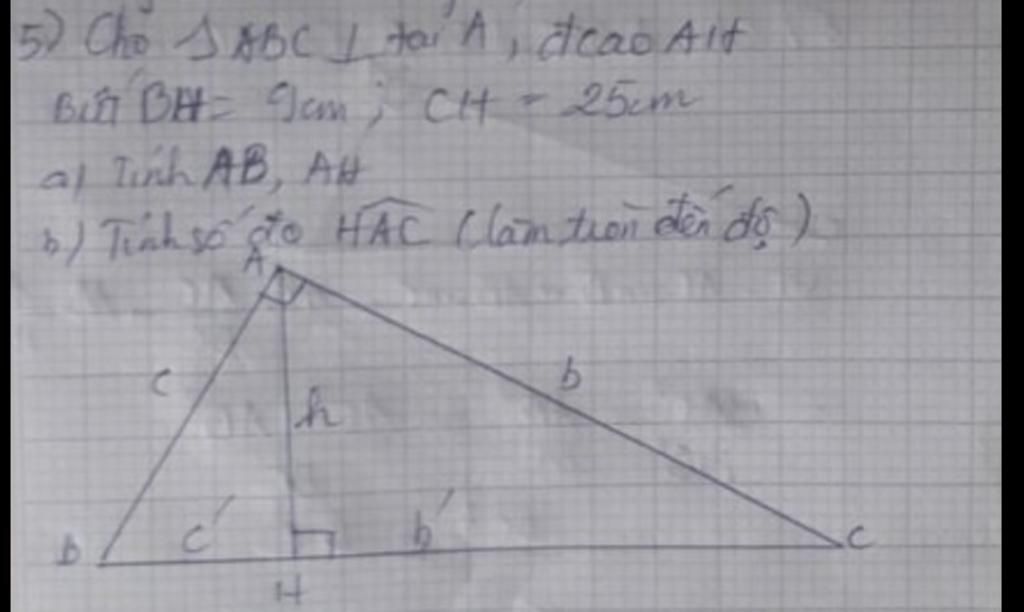 5) Cho △ ABC ⊥ tại A, đcao AH
Biết BH = 9cm; CH = 25cm
a) Tính AB, AH
b) Tính số đo HAC (làm tròn đến độ)
A
c
b
h
c'
b'
B
C
H